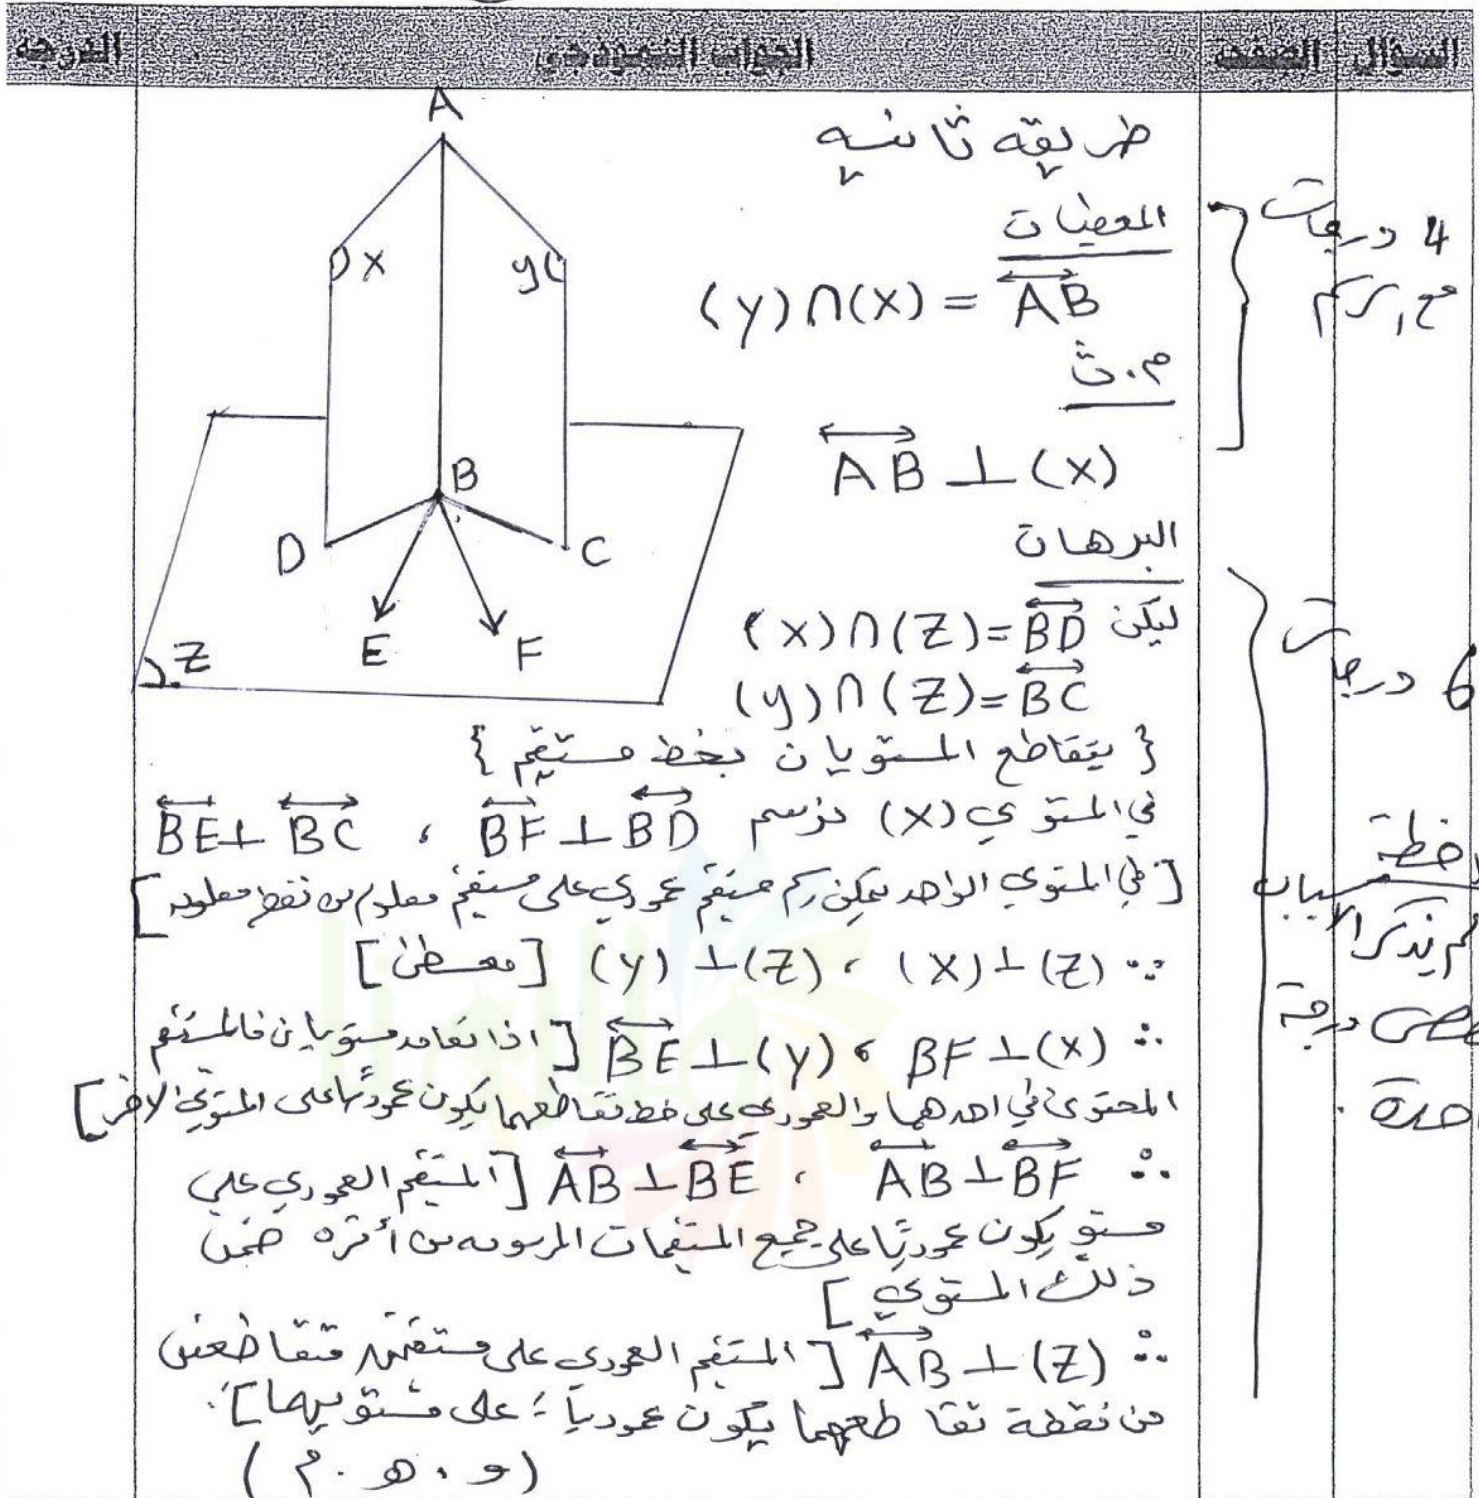 السؤال الصفحة الجواب النموذجي الدرجة
طريقه ثانيه
المعطيات
(y)∩(x) = AB
م.ث
AB ⊥ (x)
البرهان
ليكن (x)∩(Z)=BD
(y)∩(Z)=BC
{ يتقاطع المستويان بخط مستقيم }
في المستوي (x) نرسم BF ⊥ BD ، BE ⊥ BC
[ في المستوي الواحد يمكن رسم مستقيم عمودي على مستقيم معلوم من نقطة معلومه ]
∵ (x)⊥(Z) ، (y) ⊥(Z) [ معطى ]
∴ BF ⊥(x) ، BE ⊥(y) [ اذا تعامد مستويان فالمستقيم
المحتوى في احدهما والعمودي على خط تقاطعهما يكون عموديا على المستوي الاخر ]
∴ AB ⊥ BF ، AB ⊥ BE [ المستقيم العمودي على
مستو يكون عموديا على جميع المستقيمات المرسومه من أثره ضمن
ذلك المستوي ]
∴ AB ⊥ (Z) [ المستقيم العمودي على مستقيمين متقاطعين
من نقطة تقاطعهما يكون عموديا على مستويهما ].
( و . هـ . م )
A
x
y
B
D
C
E
F
Z
4 درجات
مع الرسم
6 درجات
لم يذكر الأسباب
درجة